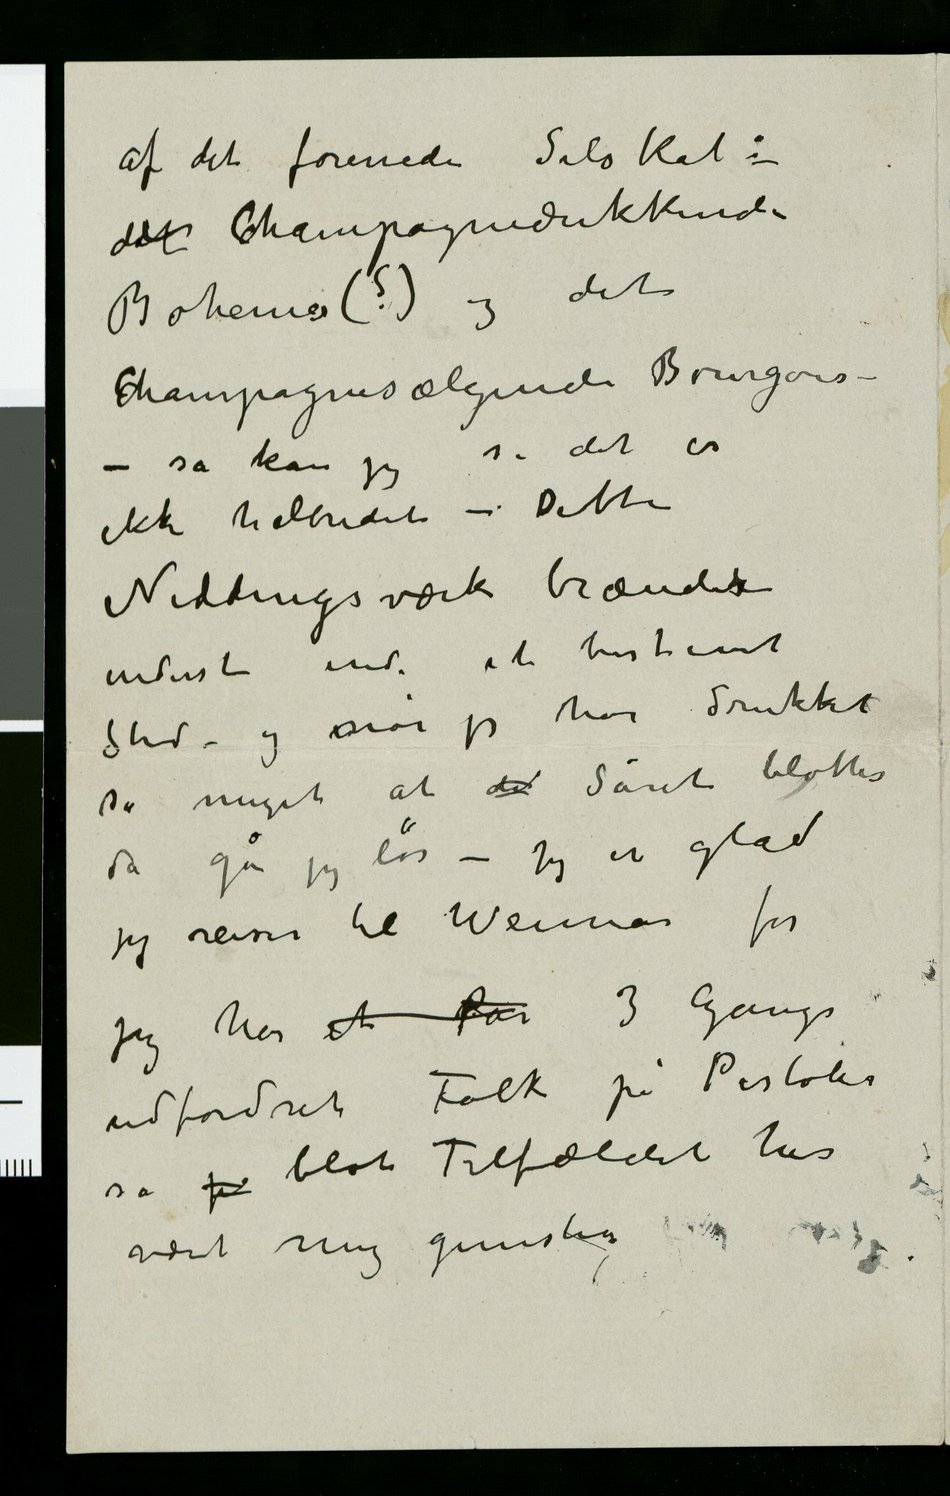 af det forenede Selskab :–
det Champagnedrikkende
Boheme(?) og det
Champagnesælgende Bourgois –
– så kan jeg se det er
ikke helbredet – Dette
Niddingsværk brænder
inderst inde et bestemt
Sted – og når jeg har drukket
så meget at det Såret blottes
da går jeg løs – jeg er glad
jeg reiser til Weimar for
jeg har et Par 3 Gange
udfordret Folk på Pistoler
så på blot Tilfældet har
vært mig gunstig